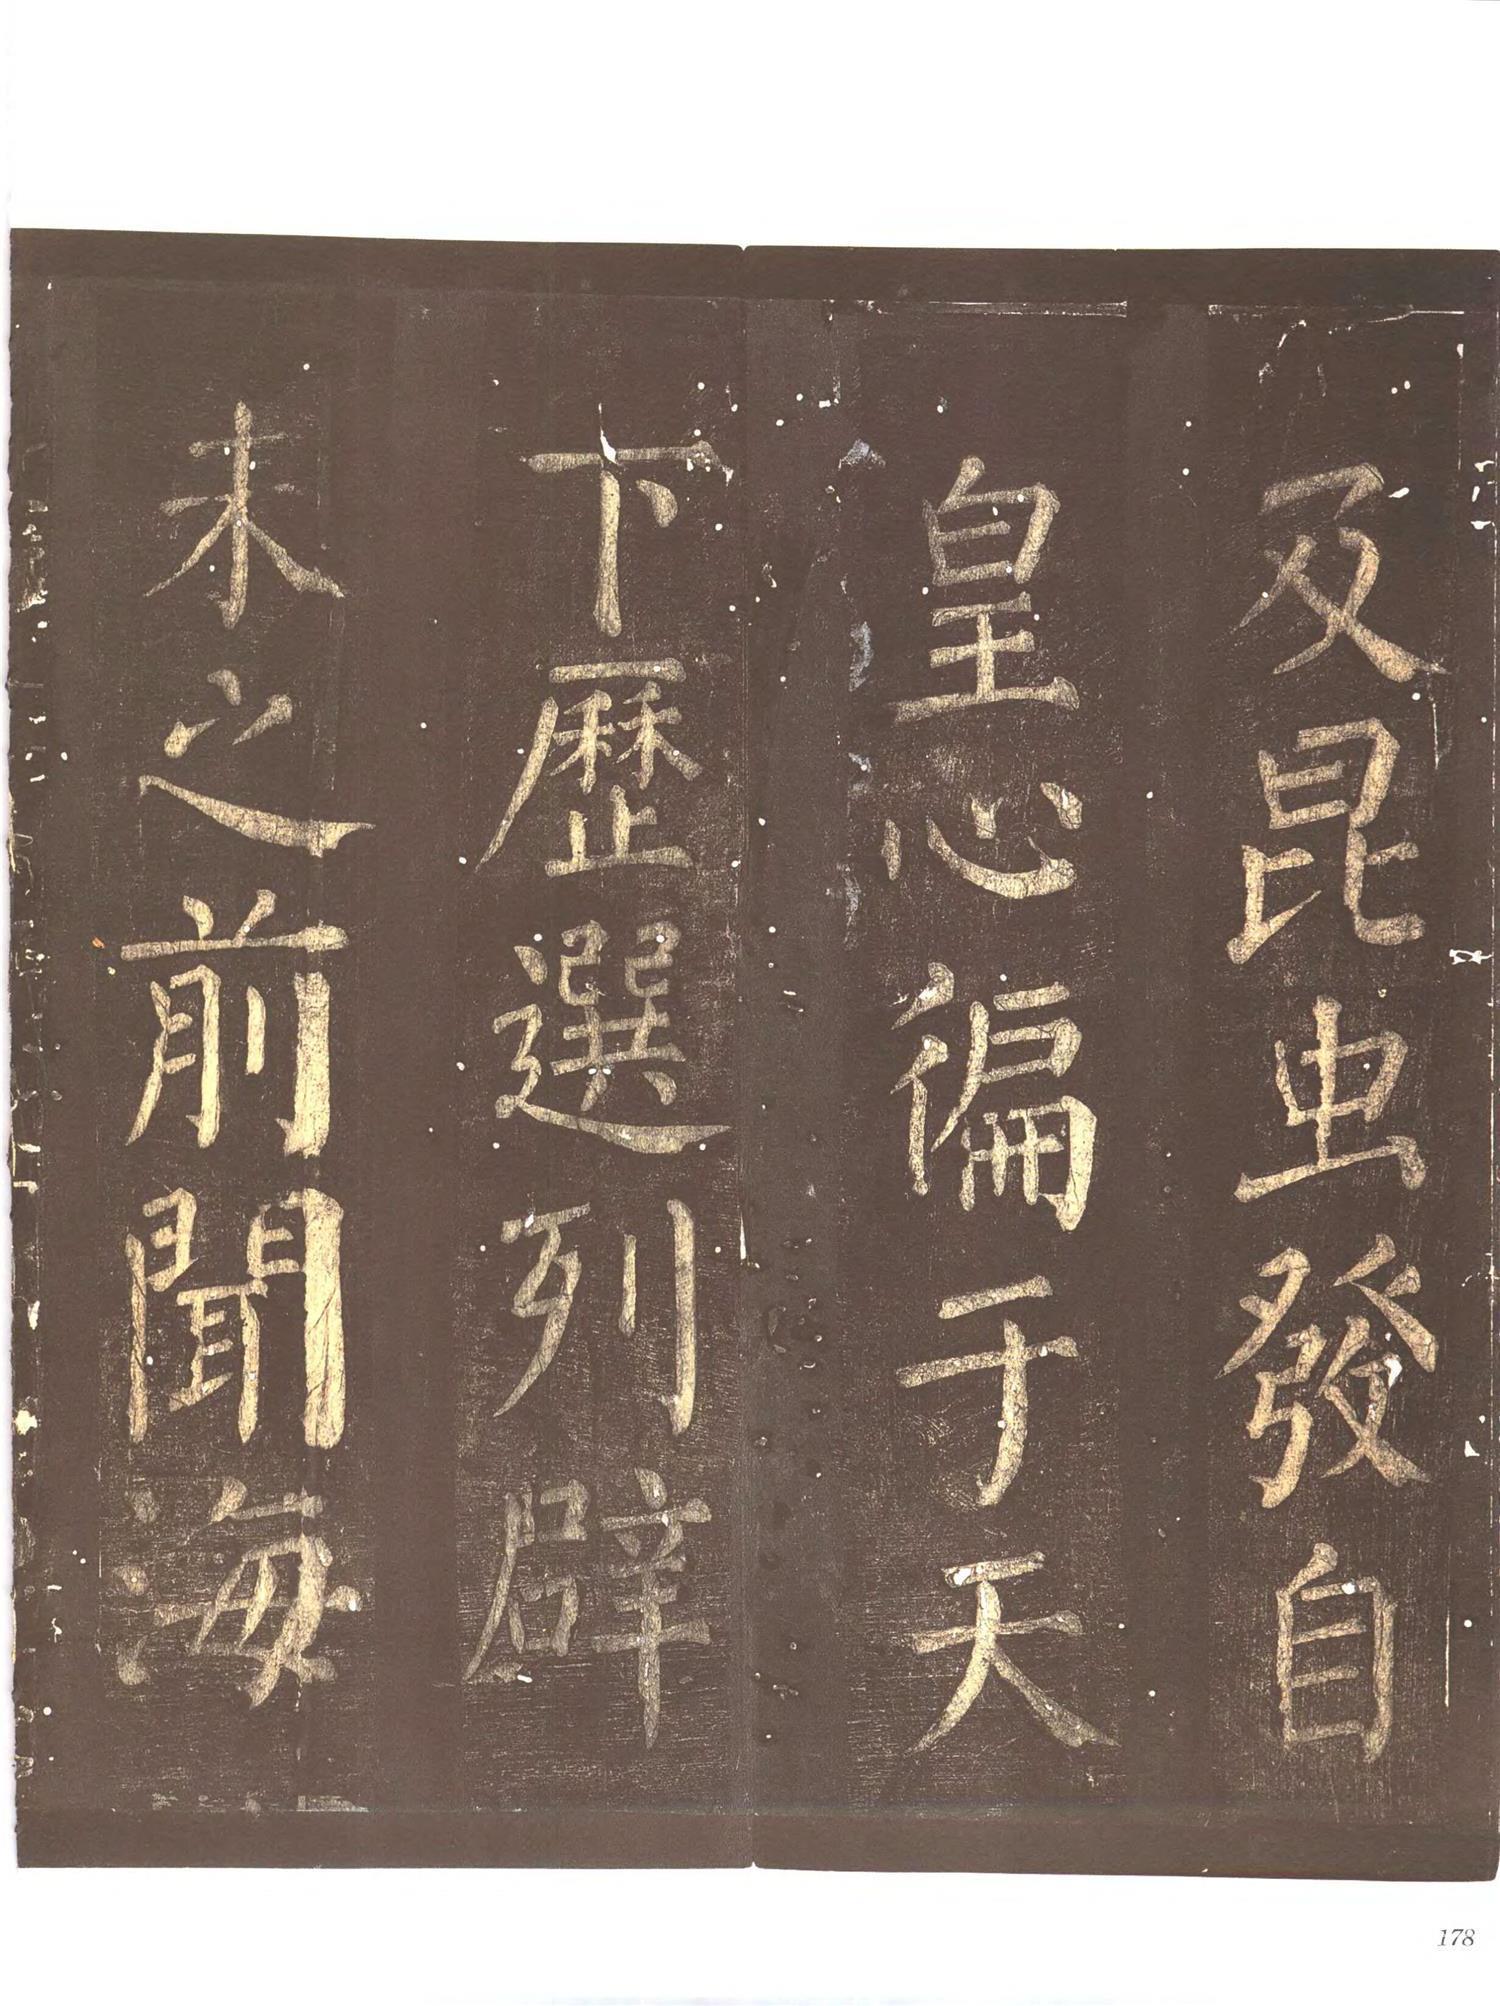 及昆虫發自
皇心徧于天
下歷選列辟
未之前聞海
178